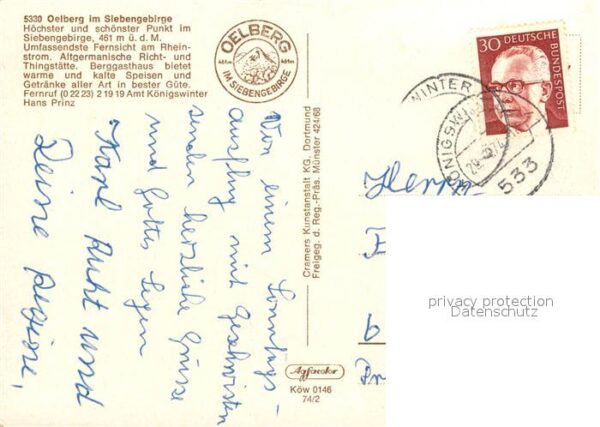 5330 Oelberg im Siebengebirge
Höchster und schönster Punkt im
Siebengebirge, 461 m ü. d. M.
Umfassendste Fernsicht am Rhein-
strom. Altgermanische Richt- und
Thingstätte. Berggasthaus bietet
warme und kalte Speisen und
Getränke aller Art in bester Güte.
Fernruf (0 22 23) 2 19 19 Amt Königswinter
Hans Prinz
OELBERG
461m 461m
IM SIEBENGEBIRGE
Von einem Sonntags-
ausflug mit Geschwistern
senden herzliche Grüße
und Gottes Segen
Karl Ruht und
Deine
Cramers Kunstanstalt KG, Dortmund
Freigeg. d. Reg.-Präs. Münster 424/68
Agfacolor
Köw 0146
74/2
30
DEUTSCHE
BUNDESPOST
KÖNIGSWINTER
533
Herrn
privacy protection
Datenschutz